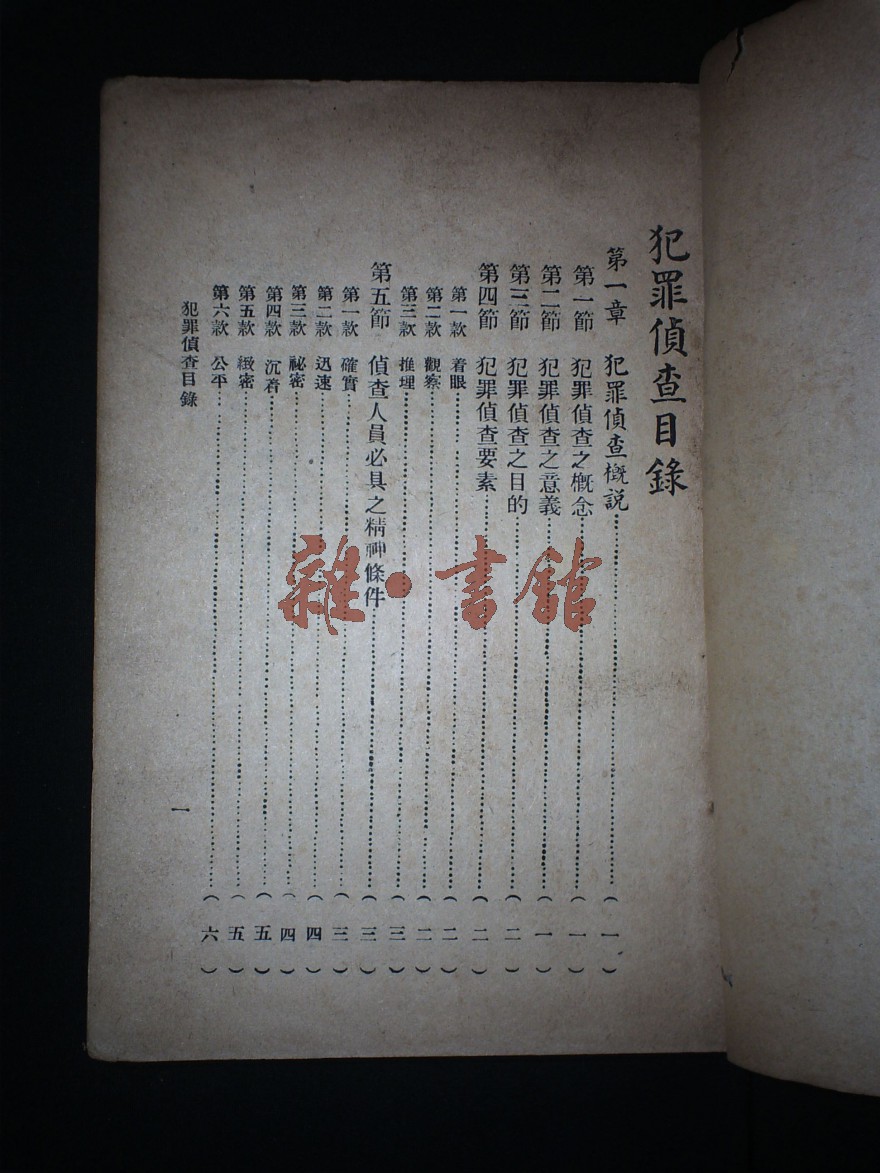 犯罪偵查目錄
第一章 犯罪偵查概説……(一)
第一節 犯罪偵查之概念……(一)
第二節 犯罪偵查之意義……(一)
第三節 犯罪偵查之目的……(二)
第四節 犯罪偵查要素……(二)
第一款 着眼……(二)
第二款 觀察……(二)
第三款 推理……(三)
第五節 偵查人員必具之精神條件……(三)
第一款 確實……(三)
第二款 迅速……(四)
第三款 祕密……(四)
第四款 沉着……(五)
第五款 緻密……(五)
第六款 公平……(六)
犯罪偵查目錄 一
雜·書館